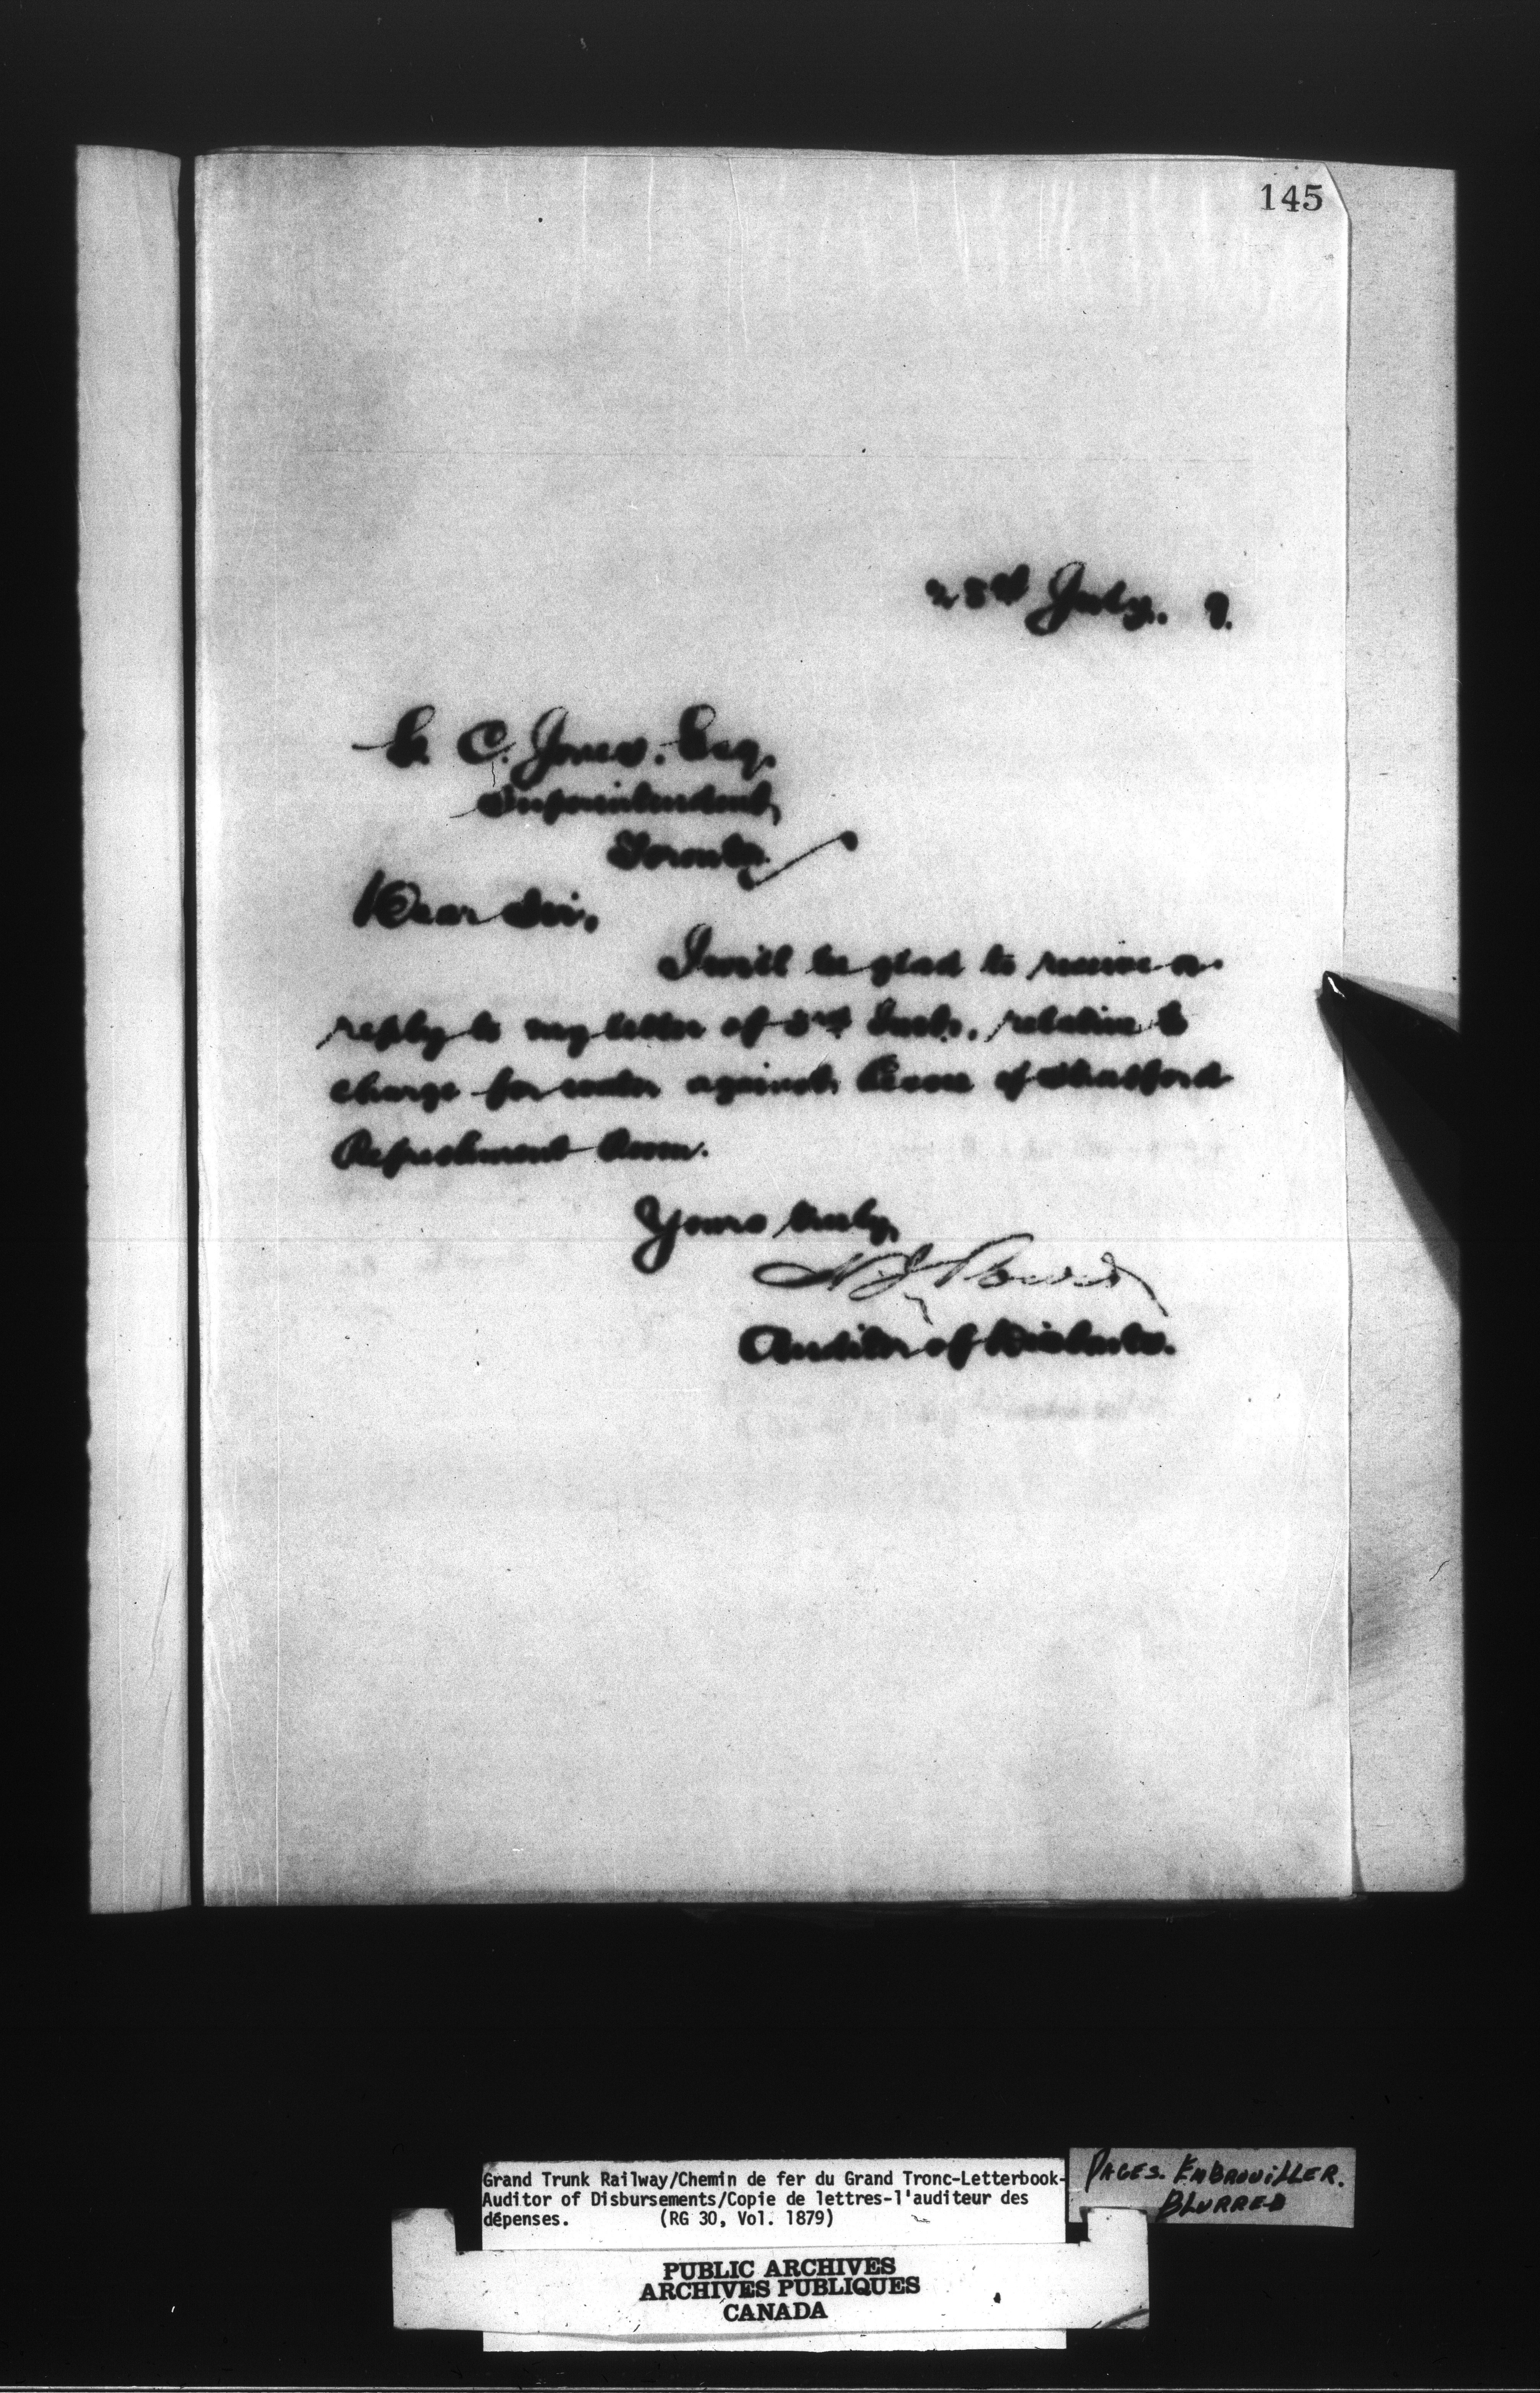 145
28th July. 9.
C. Jones. Esq.
Superintendent,
Toronto.
Dear Sir,
I will be glad to receive a
reply to my letter of 3rd Inst., relative to
charge for water against of Stratford
Refreshment Room.
Yours truly,
Auditor of Disbmts.
Grand Trunk Railway/Chemin de fer du Grand Tronc-Letterbook-
Auditor of Disbursements/Copie de lettres-l'auditeur des
dépenses. (RG 30, Vol. 1879)
PAGES. EMBROUILLER.
BLURRED
PUBLIC ARCHIVES
ARCHIVES PUBLIQUES
CANADA